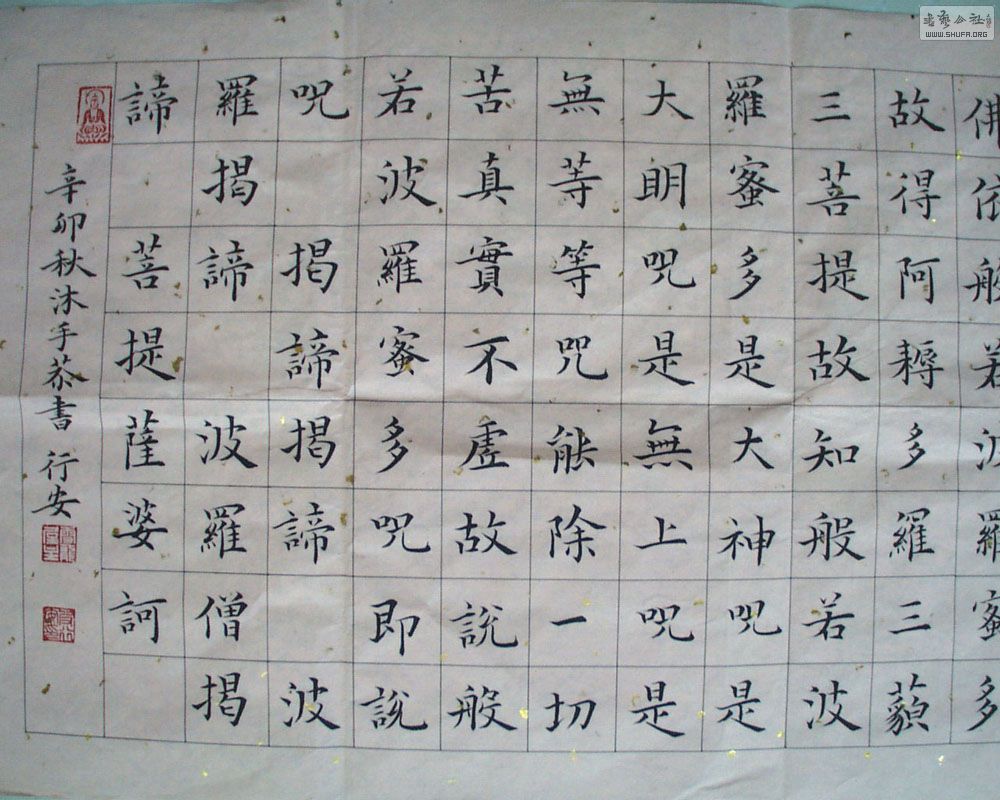 佛依般若波羅蜜多
故得阿耨多羅三藐
三菩提故知般若波
羅蜜多是大神呪是
大眀呪是無上呪是
無等等咒能除一切
苦真實不虛故說般
若波羅蜜多呪即說
呪 揭諦揭諦 波
羅揭諦 波羅僧揭
諦 菩提薩婆訶
辛卯秋沐手恭書 行安
書藝公社
WWW.SHUFA.ORG